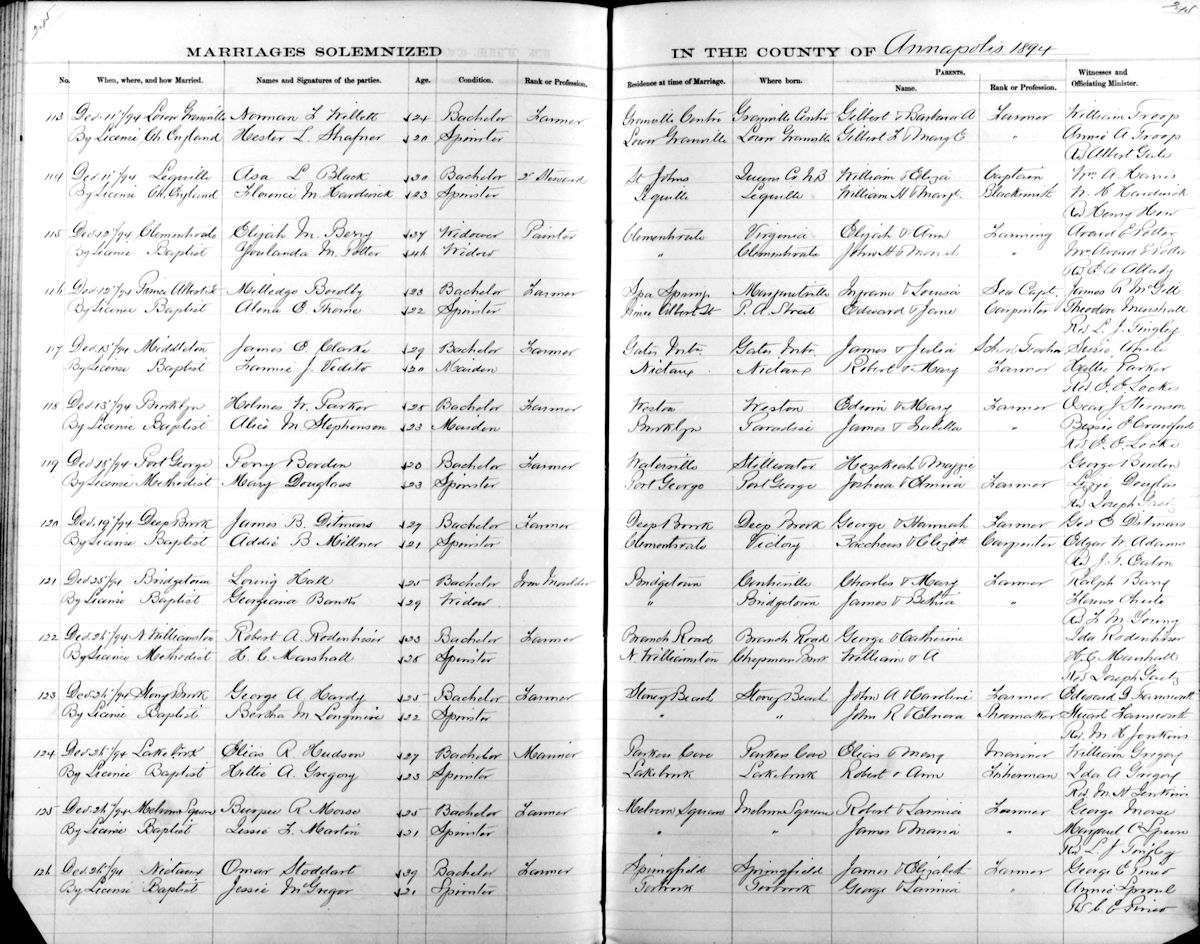 MARRIAGES SOLEMNIZED IN THE COUNTY OF Annapolis 1894
No. When, where, and how Married. Names and Signatures of the parties. Age. Condition. Rank or Profession. Residence at time of Marriage. Where born. PARENTS. Name. Rank or Profession. Witnesses and Officiating Minister.
113 Dec. 11 /94 Lower Granville Norman L Willett 24 Bachelor Farmer Granville Centre Granville Centre Gilbert & Barbara A Farmer William Troop
By License Ch. England Hester L Shafner 20 Spinster Lower Granville Lower Granville Gilbert & Mary E " Annie A Troop
Rev Albert Gale
114 Dec 11 /94 Lequille Asa L Black 30 Bachelor 2d Steward St Johns Queens Co NB William & Eliza Captain Wm A Harris
By License Ch. England Florence M. Hardwick 23 Spinster Lequille Lequille William H & Margt. Blacksmith W. H Hardwick
Rev Henry How
115 Dec 12 /94 Clementsvale Elijah M. Berry 37 Widower Painter Clementsvale Virginia Elijah & Ann Farming Avard E Potter
By License Baptist Youlanda M. Potter 46 Widow " Clementsvale John H & " Mrs Avard E Potter
Rev
116 Dec 12 /94 Prince Albert St Milledge Bowlby 23 Bachelor Farmer Spa Springs Margaretville Ingram & Louisa Sea Capt. James R McGill
By License Baptist Alena E Thorne 22 Spinster Prince Albert St P. A. Street Edward & Jane Carpenter Theodore Marshall
Rev L. J. Tingley
117 Dec. 13 /94 Middleton James E Clarke 29 Bachelor Farmer Gates Mtn. Gates Mtn. James & Julia School Teacher Susie
By License Baptist Fannie J. Vidito 20 Maiden Nictaux Nictaux Robert & Mary Farmer Hallie Parker
Rev E. E. Locke
118 Dec 13 /94 Brooklyn Holmes W. Parker 25 Bachelor Farmer Weston Weston Edwin & Mary Farmer Oscar J.
By License Baptist Alice M. Stephenson 23 Maiden Brooklyn Paradise James & Isabella " Bessie Crawford
Rev E. E. Locke
119 Dec 15 /94 Port George Perry Borden 23 Bachelor Farmer Waterville Stillwater Hezekiah & Maggie George Borden
By License Methodist Mary Douglass 23 Spinster Port George Port George Joshua & Farmer Lizzie Douglas
Rev Joseph Gaetz
120 Dec. 19 /94 Deep Brook James B. Ditmars 27 Bachelor Farmer Deep Brook Deep Brook George & Hannah Farmer Geo E Ditmars
By License Baptist Addie B Millner 21 Spinster Clementsvale Victory Zaccheus & Elizbth Carpenter Edgar W. Adams
Rev J. T. Eaton
121 Dec 25 /94 Bridgetown Loring Hall 25 Bachelor Iron Moulder Bridgetown Centreville Charles & Mary Farmer Ralph
By License Baptist Georgiana Banks 29 Widow " Bridgetown James & " Florence Chute
Rev F. M. Young
122 Dec. 26 /94 N Williamston Robert A. Rodenhiser 23 Bachelor Farmer Branch Road Branch Road George & Catherine Ida Rodenhiser
By License Methodist H. C. Marshall 28 Spinster N. Williamston Chapman Brook William & A H. C. Marshall
Rev Joseph Gaetz
123 Dec. 26 /94 Stony Brook George A. Hardy 25 Bachelor Farmer Stoney Beach Stoney Beach John A & Caroline Farmer Edward
By License Baptist Bertha M Longmire 22 Spinster " " John R & Elnora Shoemaker Stuart
Rev. M. H. Jenkins
124 Dec 26 /94 Lake brook Elias R Hudson 27 Bachelor Mariner Parkers Cove Parkers Cove Elias & Mary Mariner William Gregory
By License Baptist Hettie A. Gregory 23 Spinster Lakebrook Lakebrook Robert & Ann Fisherman Ida A Gregory
Rev. M. H Jenkins
125 Dec 26 /94 Melvern Square Burpee R. Morse 25 Bachelor Farmer Melvern Square Melvern Square Robert & Lavinia Farmer George Morse
By License Baptist Lessie F. Martin 21 Spinster " " James & Maria " Margaret C
Rev L J Tingley
126 Dec. 26 /94 Nictaux Omar Stoddart 39 Bachelor Farmer Springfield Springfield James & Elizabeth Farmer George E Pineo
By License Baptist Jessie McGregor 21 Spinster Torbrook Torbrook George & Lavinia " Annie Sproul
Rev C. E Pineo